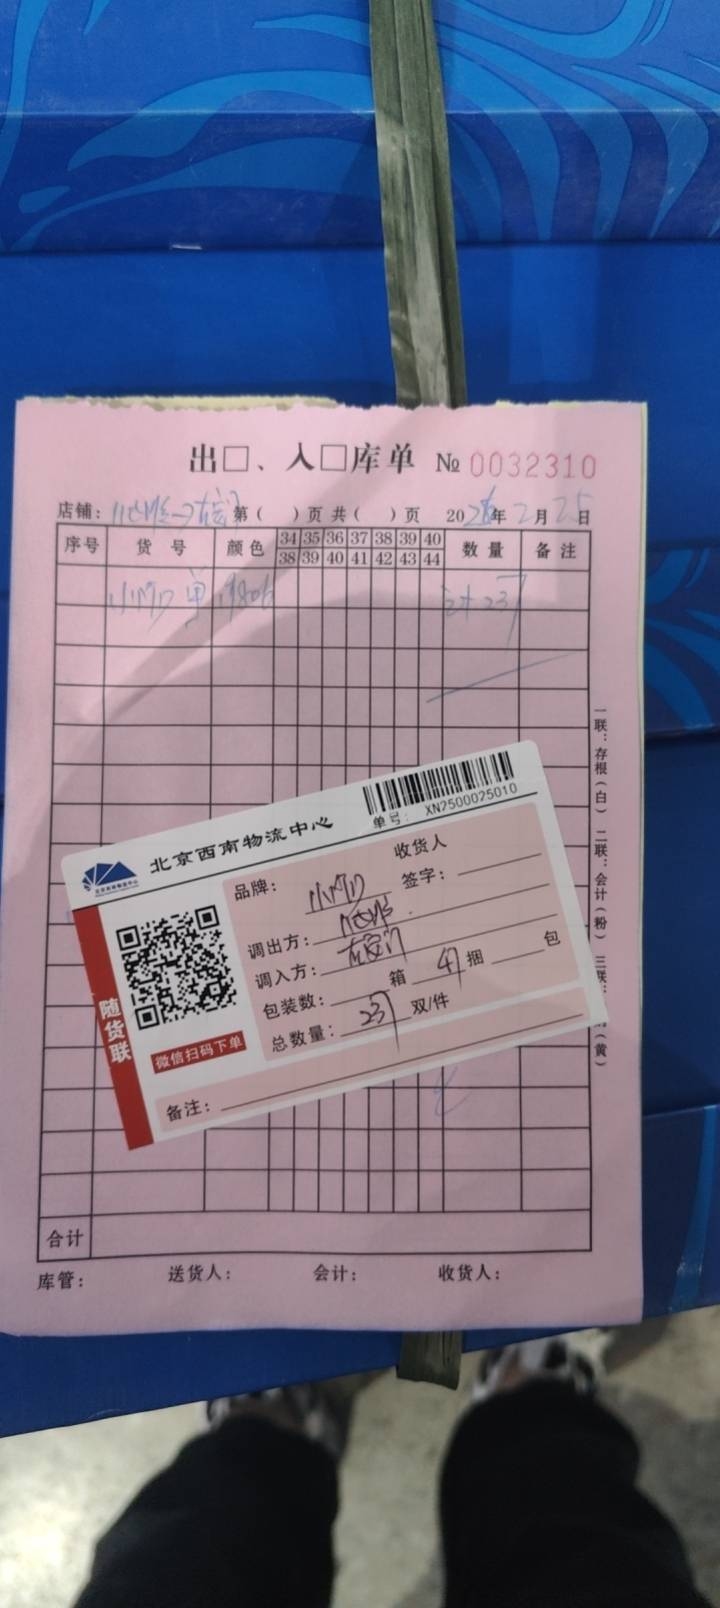 出□、入□库单 № 0032310
店铺： 第( )页 共( )页 20 年 2月25日
序号 货号 颜色 34 35 36 37 38 39 40 数量 备注
38 39 40 41 42 43 44
单 237
一联：存根(白) 二联：会计(粉) 三联： (黄)
北京西南物流中心
单号： XN2500025010
品牌：
收货人
签字：
调出方：
调入方： 左安门
包装数： 箱 41 捆 包
总数量： 237 双/件
随货联
微信扫码下单
备注：
合计
库管： 送货人： 会计： 收货人：